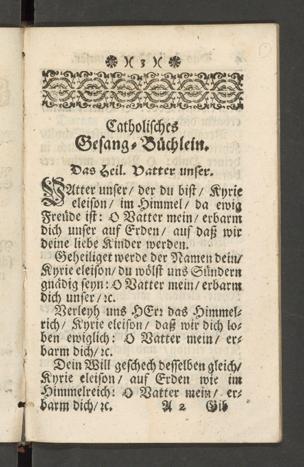 3
Catholisches
Gesang-Büchlein.
Das Heil. Vatter unser.
VAtter unser/ der du bist/ Kyrie
eleison/ im Himmel/ da ewig
Freude ist: O Vatter mein/ erbarm
dich unser auf Erden/ auf daß wir
deine liebe Kinder werden.
Geheiliget werde der Namen dein/
Kyrie eleison/ du wölst uns Sündern
gnädig seyn: O Vatter mein/ erbarm
dich unser/ ꝛc.
Verleyh uns HErr das Himmel-
rich/ Kyrie eleison/ daß wir dich lo-
ben ewiglich: O Vatter mein/ er-
barm dich/ ꝛc.
Dein Will geschech desselben gleich/
Kyrie eleison/ auf Erden wie im
Himmelreich: O Vatter mein/ er-
barm dich/ ꝛc. A 2 Gib